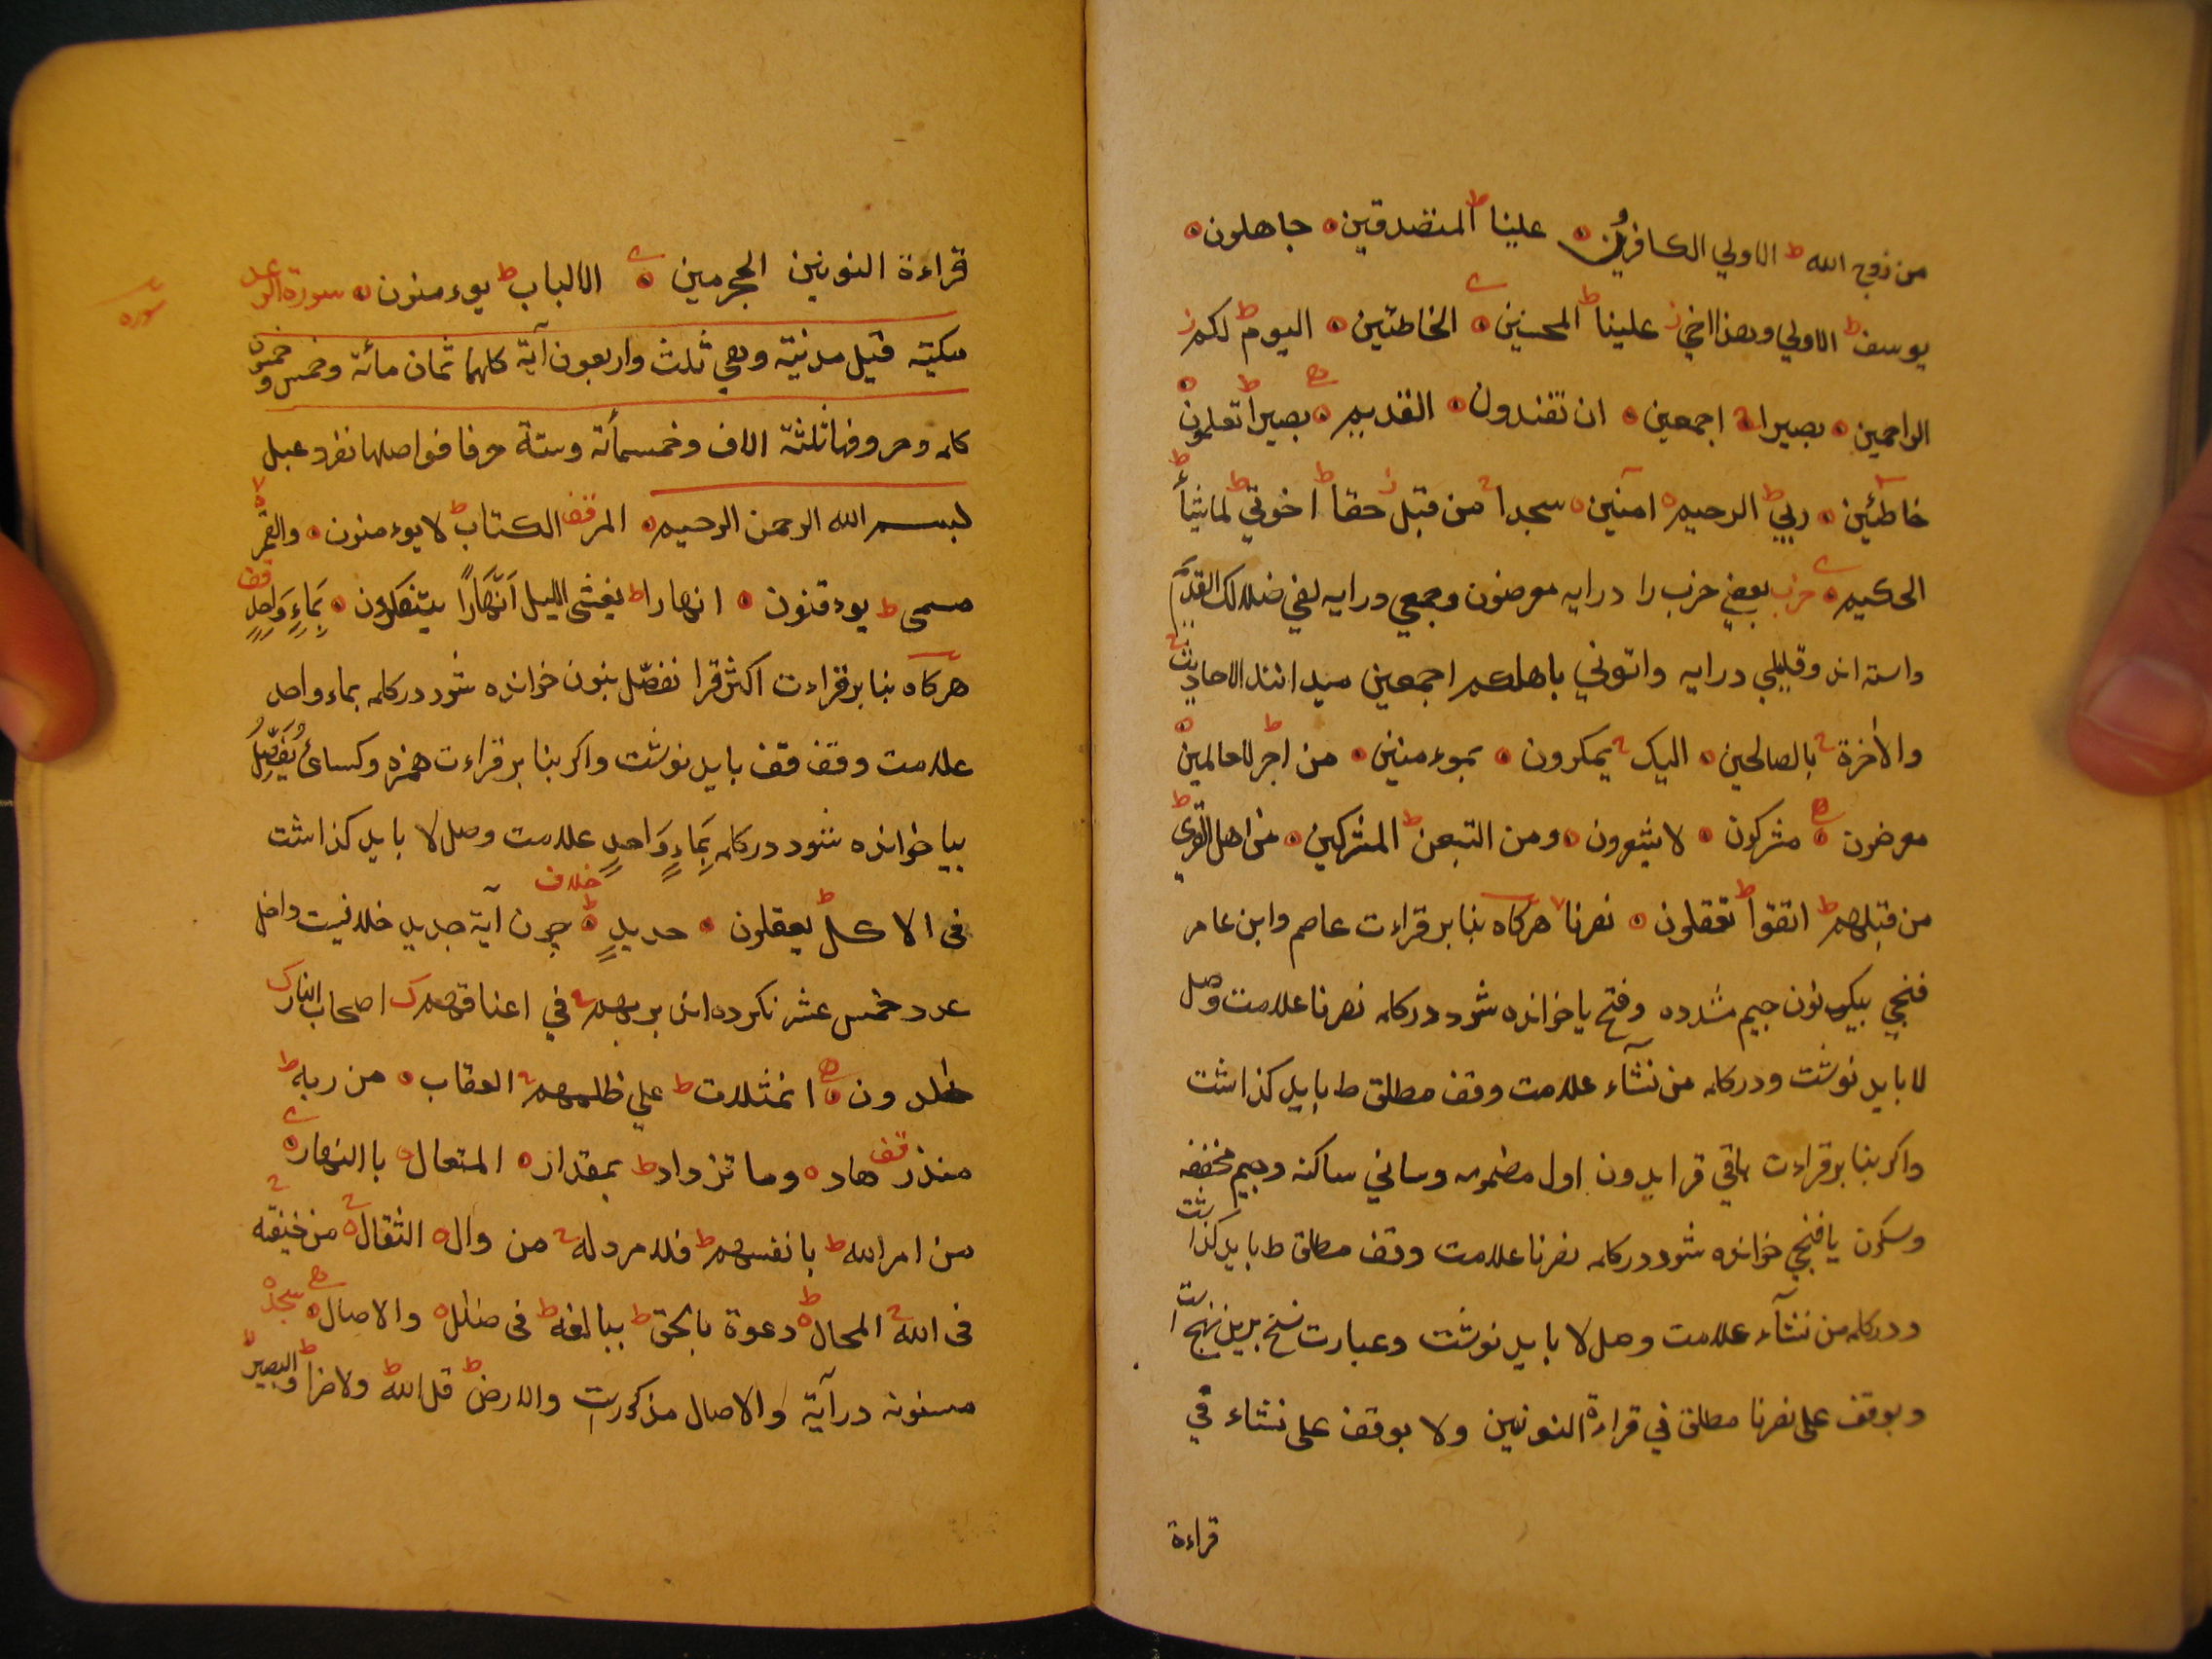 من زوح الله ط الاولي الكافرين ه علينا ط المتصدقين ه جاهلون ه
يوسف ط الاولي وهذا اخي ز علينا ط المحسنين ه الخاطئين ه اليوم ط لكم ز
الراحمين ه بصيرا ه اجمعين ه ان تفندون ه القديم ه بصيرا ط تعلمون ه
خاطئين ه ربي ط الرحيم ه امنين ه سجدا من قبل ز حقا ط اخوتي ط لما يشأ ط
الحكيم ه حزب بعضي حزب را درايه معرضون وجمعي درايه لفي ضلالك القديم
واسته اند وقليلي درايه واتوني باهلكم اجمعين ميدانند الاحاديث
والاخرة بالصالحين ه اليك يمكرون ه بموءمنين ه من اجر ط للعالمين ه
معرضون ه مشركون ه لا يشعرون ه ومن اتبعن ط المشركين ه من اهل القرى ط
من قبلهم ط اتقوا ط تعقلون ه نصرنا لا هركاه بنا بر قراءت عاصم وابن عامر
فنجي بيك نون جيم مشدده وفتح يا خوانده شود دركلمه نصرنا علامت وصل
لا بايد نوشت ودركلمه من نشآء علامت وقف مطلق ط بايد كذاشت
واكر بنا بر قراءت باقي قرا بدون اول مضمومه وساني ساكنه وجيم مخففه
وسكون يا فنجي خوانده شود دركلمه نصرنا علامت وقف مطلق ط بايد كذاشت
ودركلمه من نشآء علامت وصل لا بايد نوشت وعبارت نسخ بدين نهج است
ويوقف على نصرنا مطلق في قراءة النونين ولا يوقف على نشاء في
قراءة
قراءة النونين المجرمين ه الالباب ط يوءمنون ه سورة الرعد
مكيته قيل مدنيتة وهي ثلث واربعون آية كلهما ثمان مائة وخمس وخمسون
كلمه وحروفها ثلثة الاف وخمسمأئة وستة حرفا فواصلها نفرد عبل
بسم الله الرحمن الرحيم ه المر قف الكتاب ط لا يوءمنون ه والقمر
مسمى ط يوءقنون ه انهارا ط يغشى الليل النَّهَارًا يتفكرون ه بِمَاءٍ وَاحِدٍ قف
هركاه بنا بر قراءت اكثر قرا نفصّل بنون خوانده شود دركلمه بماء واحد
علامت وقف قف بايد نوشت واكر بنا بر قراءت حمزه وكسائ يُفَصِّلُ
بيا خوانده شود دركلمه بِمَاءٍ وَاحدٍ علامت وصل لا بايد كذاشت
فى الاكل ط يعقلون ه جديدٍ ه خلاف چون آية جديد خلافيست داخل
عدد خمس عشر نكرده اند بربهم في اعناقهم اصحاب النار
خلدون ه المثلات ط علي ظلمهم العقاب ه من ربه ط
منذر قف هاد ه وما تزداد ط بمقدار ه المتعال ه باالنهار ه
من امر الله ط بانفسهم ط فلا مرد له من وال ه الثقال ه من خيفته
فى الله المحال ه دعوة بالحق ط ببالغه ط فى ضلل ه والاصال ه سجده
مسنونه درآية والاصال مذكورست والارض ط قل الله ط ولا ضرا ط والبصير لا
سوره